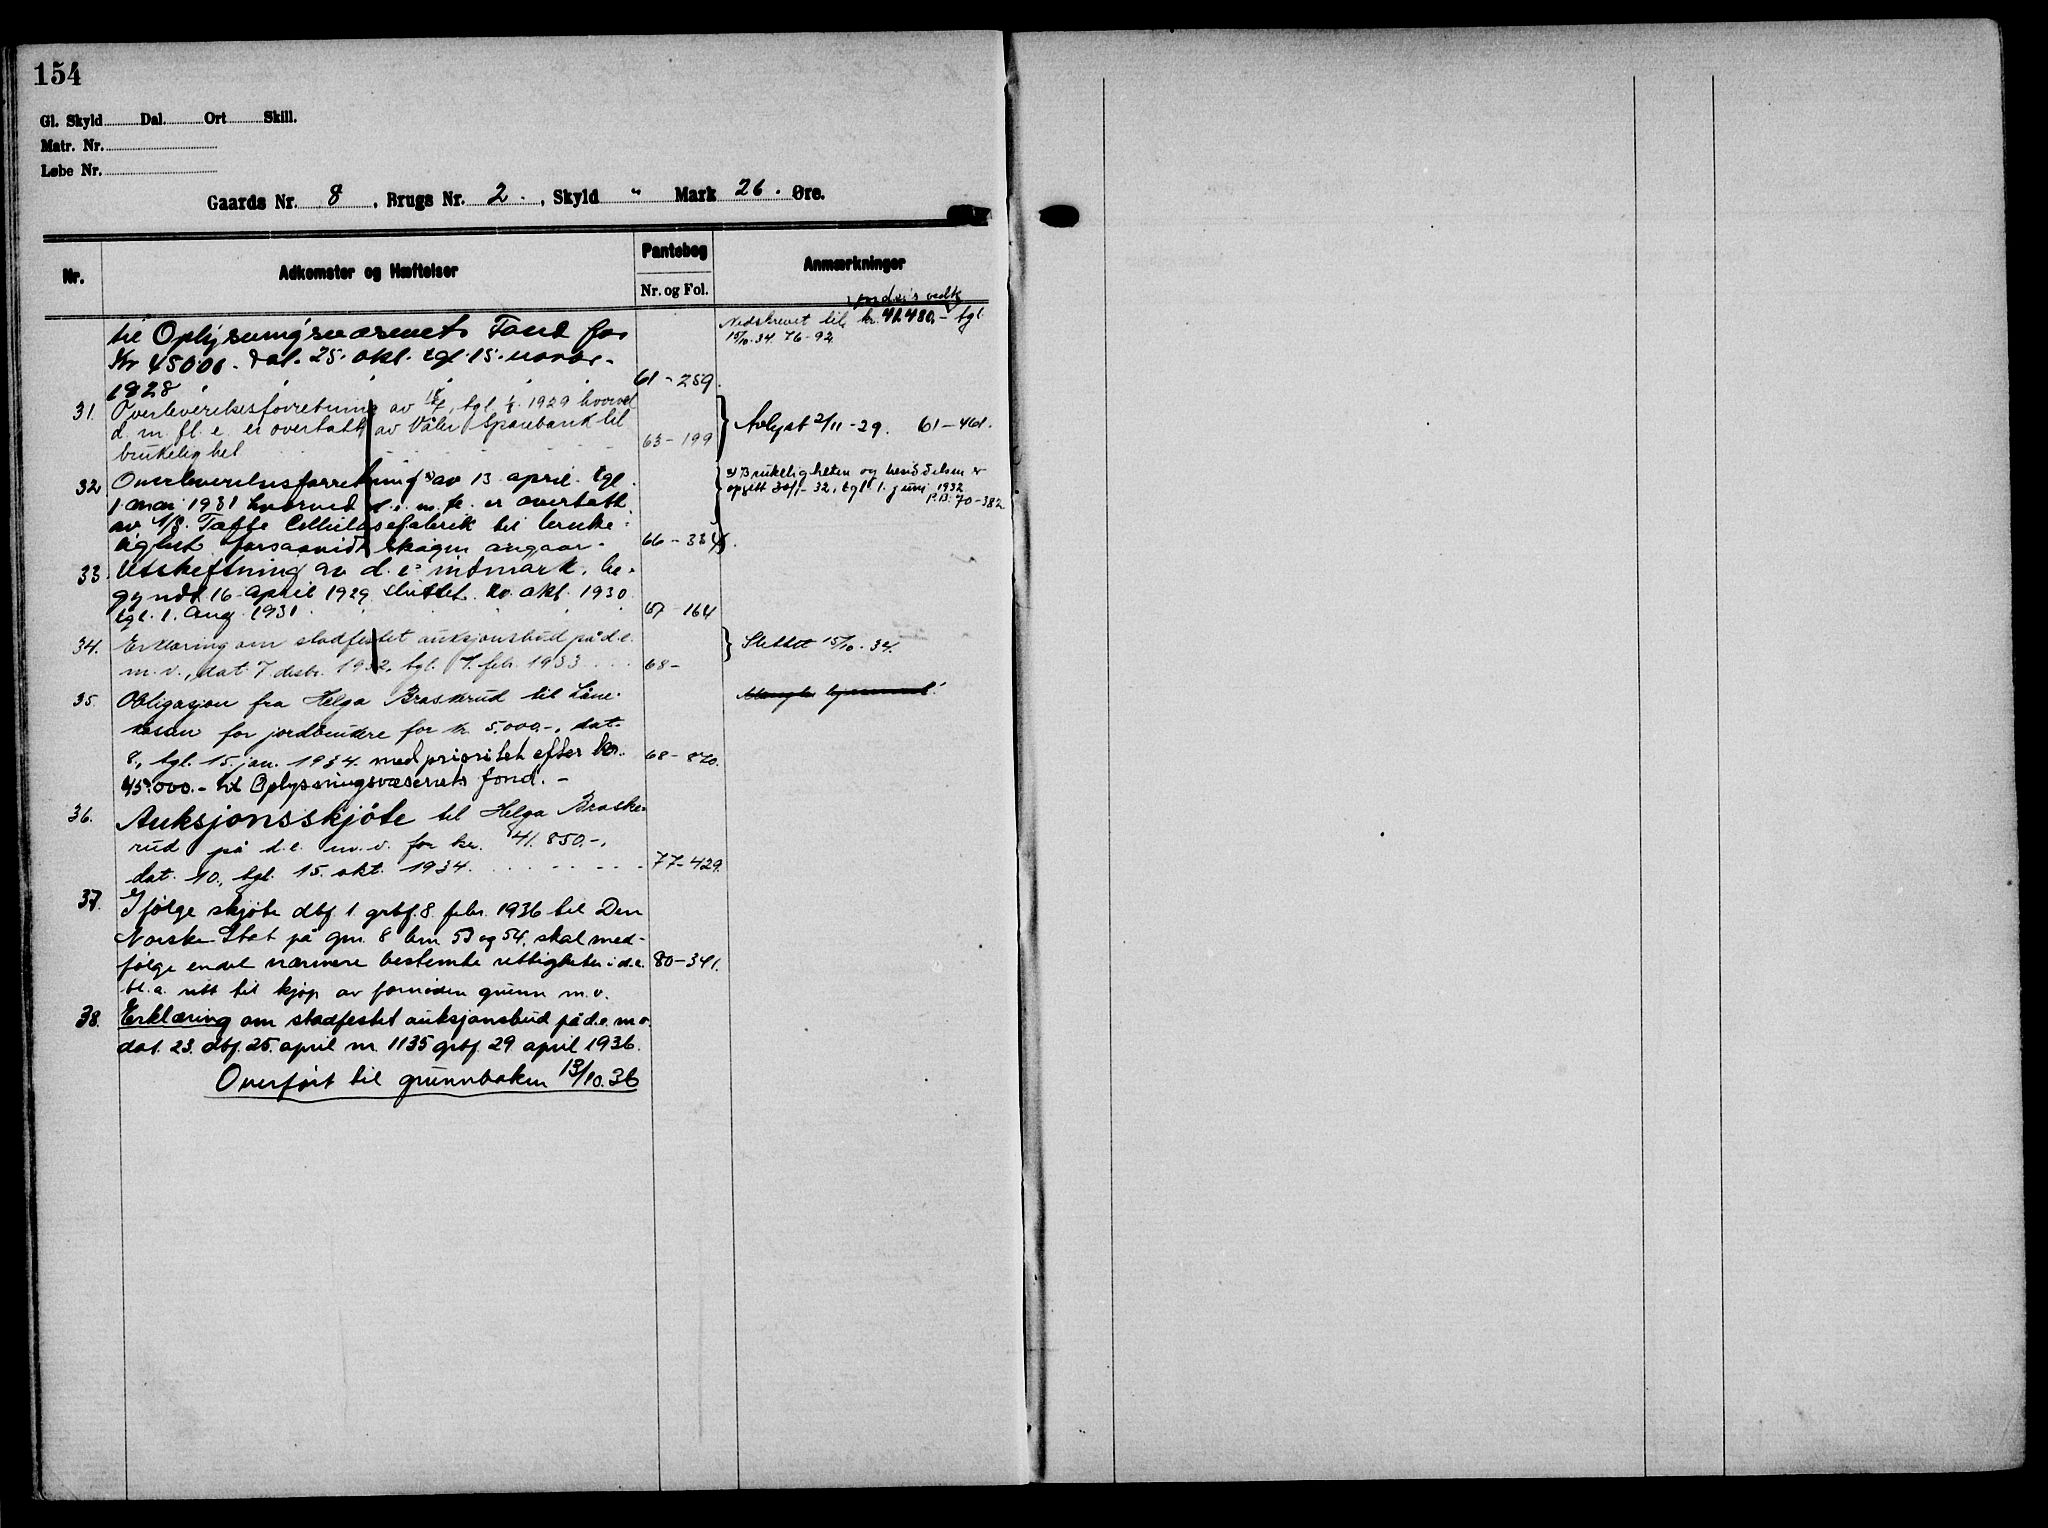 154
Gl. Skyld Dal. Ort Skill.
Matr. Nr.
Løbe Nr.
Gaards Nr. 8, Brugs Nr. 2., Skyld " Mark 26. Øre.
Nr. Adkomster og Hæftelser Pantebog Nr. og Fol. Anmærkninger
til Oplysningsvæsenets Fond for
Kr 45000. Dat. 25. okt. tgl. 15. novbr.
1928 61-259.
Nedskrevet til kr. 41.480,- tgl.
15/10.34. 76-92
31. Overleverelsesforretning av tgl. 1929 hvorved
d. m. fl. e. er overtatt av Våler Sparebank til
brukelighet 63-199
Avlyst 2/11-29. 61-461.
32. Overleverelsesforretning av 13. april tgl.
1. mai 1931 hvorved d. e. m. fl. er overtatt
av A/S Tofte Cellulosefabrik til bruke-
lighet forsaavidt skogen angaar. 66-
Brukeligheten og besiddelsen er
opgitt 30/5-32, tgl. 1. juni 1932
P.B. 70-382
33. Utskiftning av d. e. indmark, be-
gyndt 16. april 1929 sluttet 20. okt. 1930
tgl. 1. aug. 1931 67-164
34. Erklæring om stadfestet auksjonsbud på d. e.
m. v., dat. 7. desbr. 1932, tgl. 7. febr. 1933 68-
Slettet 15/10.34.
35. Obligasjon fra Helga Braskerud til Låne-
kassen for jordbrukere for kr. 5.000.-, dat.
8., tgl. 15. jan. 1934. med prioritet efter kr.
45.000.- til Oplysningsvæsenets fond. - 68-820.
36. Auksjonsskjøte til Helga Braske-
rud på d. e. m. v. for kr. 41.850.-,
dat. 10., tgl. 15. okt. 1934. 77-429.
37. Ifølge skjøte dbf. 1. grbf. 8. febr. 1936 til Den
Norske Stat på gnr. 8 bnr 53 og 54, skal med-
følge endel nærmere bestemte rettigheter i d. e. 80-341.
bl. a. rett til kjøp av fornøden grunn m. v.
38. Erklæring om stadfestet auksjonsbud på d. e. m v.
dat. 23. dbf. 25. april nr. 1135 grbf. 29. april 1936.
Overført til grunnboken 13/10.36